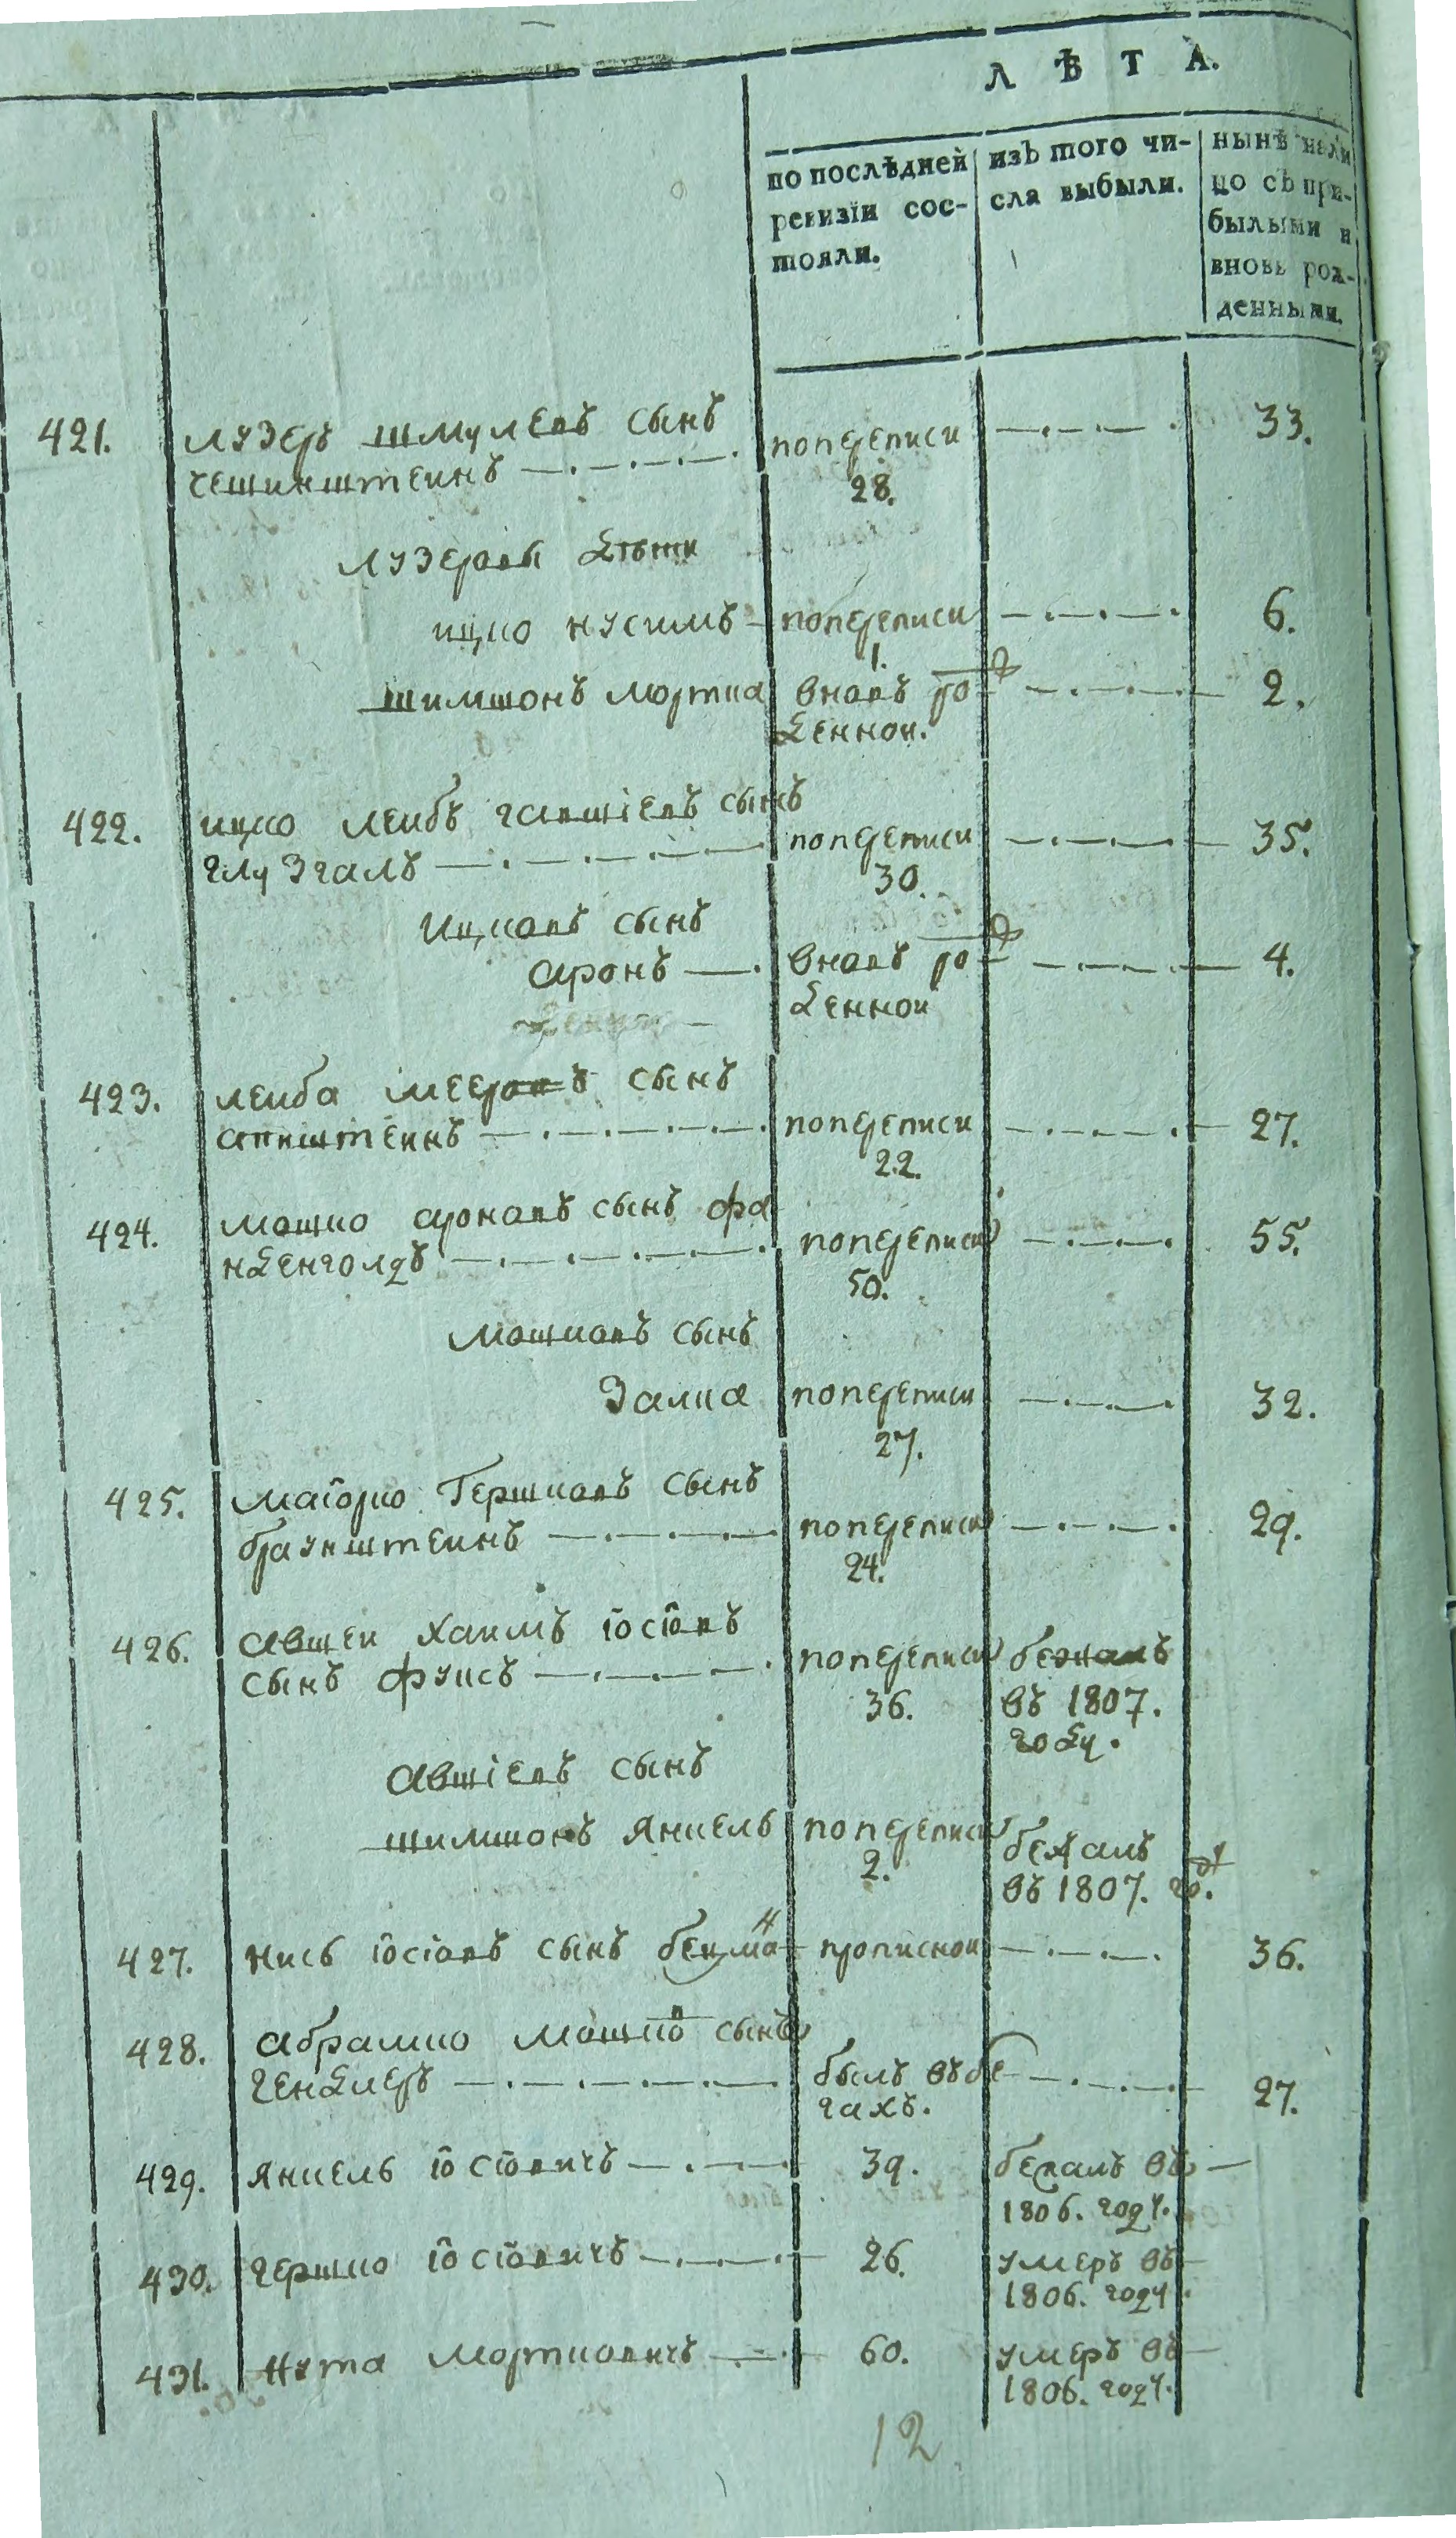 Л Ѣ Т А.
по послѣдней
ревизїи сос-
тояли.
изъ того чи-
сла выбыли.
нынѣ нали
цо съ при-
былыми и
вновь рож-
денными.
421. лузеръ шмулевъ сынъ попереписи 33.
28.
лузеровы дѣти
ицко нусимъ попереписи 6.
1.
шимшонъ мортка вновъ рож 2.
денной.
422. ицко леибъ гавшіевъ сынъ попереписи 35.
глузгалъ 30.
Ицковъ сынъ
аронъ вновъ рож 4.
денной
423. леиба мееровъ сынъ
апнштеинъ попереписи 27.
22.
424. мошко ароновъ сынъ фа
нденголдъ попереписи 55.
50.
мошковъ сынъ
Залка попереписи 32.
27.
425. маіорко Гершковъ сынъ
браунштеинъ попереписи 29.
24.
426. Авшеи хаимъ іосіовъ
сынъ фуксъ попереписи бежалъ
36. въ 1807.
году.
Авшіевъ сынъ
шимшонъ янкель попереписи бежалъ
2. въ 1807. год.
427. кись іосіовъ сынъ бекман прописнои 36.
428. абрамко мошков сынъ
гендлеръ былъ въ бе 27.
гахъ.
429. янкель іосіовичъ 39. бежалъ въ
1806. году.
430. гершко іосіовичъ 26. умеръ въ
1806. году.
431. нута мортковичъ 60. умеръ въ
1806. году.
12